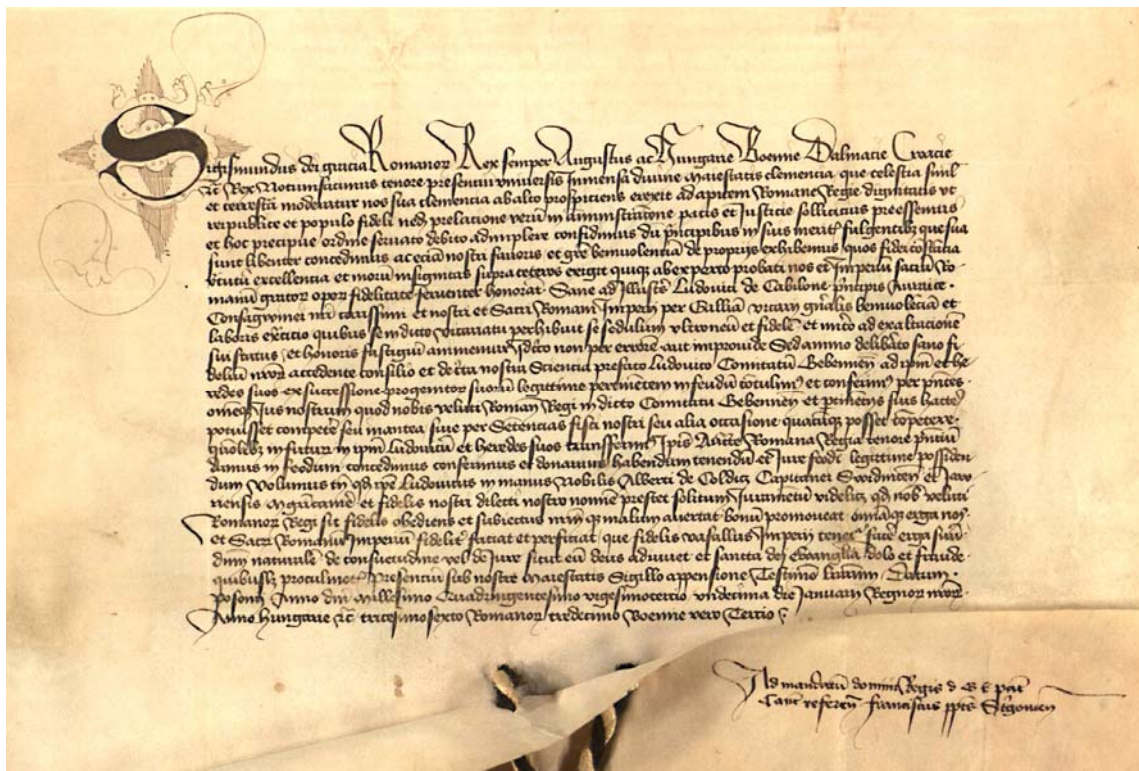 Sigismundus dei gracia Romanor Rex semper Augustus ac Hungarie Boemie Dalmacie Croacie
ꝛc Rex Notum facimus tenore presentiu vniuersis Inmensa diuine maiestatis clemencia que celestia siml
et terrestia moderatur nos sua clemencia ab alto prospiciens erexit ad apicem Romane Regie dignitatis vt
reipublice et populo fideli nedu prelacione veru in aministracone pacis et Iusticie solliciti preessemus
et hoc precipue ordine seruato debito adimplere confidimus du principibus in suis merit fulgentibz que sua
sunt libenter concedimus ac eciam nostri fauoris et gre beniuolencia de proprijs exhibemus quos fidei costacia
virtutu excellencia et moru insignitas supra ceteros erigit quiqz ab experto probati nos et Imperiu sacru Ro-
manu grator oper fidelitate feruenter honorat. Sane ad Illustris Ludouici de Cabilone principis Auraice.
Consagwinei nri carissimi et nostri et Sacri Romani Imperij per Galliam vicarij gnralis beniuolecia et
laboris exercitio quibus se in dicto vicariatu perhibuit se sedulum vltroneu et fidele et mrito ad exaltacione
sui status et honoris fastigiu animemur Idcirco non per errore aut improuide Sed animo deliberato sano fi-
deliu nror accedente consilio et de certa nostra Sciencia prefato Ludouico Comitatu Gebennen ad ipm et he-
redes suos ex successione progenitor suoru legittime pertinentem in feudu cotulim et conferim per pntes.
omneqz Jus nostrum quod nobis veluti Roman Regi in dicto Comitatu Gebennen et pertinencijs suis hacten
potuisset competere seu in antea siue per Setencias fisci nostri seu alia occasione quacuqz posset copetere.
quolibz in futur in ipm Ludouicu et heredes suos transferim Ipis Aucte Romana Regia tenore pntiu
damus in feodum concedimus conferimus et donamus habendum tenendu et Iure feodi legittime possiden-
dum Volumus tn qd ipe Ludouicus in manus Nobilis Alberti de Coldicz Capitanei Swidnicen et Jaw-
riensis et fidelis nostri dilecti nostro nomine prestet solitum Iuramentu videlicz qd nob veluti
Romanor Regi sit fidelis obediens et subiectus malum auertat bonu promoueat omiaqz erga nos.
et Sacru Romanu Imperiu fidelit faciat et perficiat que fidelis vasallus Imperij tenet face erga suu
dnm naturale de consuetudine vel de Iure sicut eu deus adiuuet et sancta dei Ewanglia dolo et fraude
quibuslz proculmot Presenciu sub nostre Maiestatis Sigillo appensione Testimonio literarum. Datum.
Posonij Anno dni Millesimo Quadringentesimo vigesimotercio vndecima die Januarij Regnor nror.
Anno Hungarie ꝛc tricesimosexto Romanor tredecimo Boemie vero Tercio
Ad mandatu domini Regis d G E pat
Canc referen Franciscus ppts Strgonien